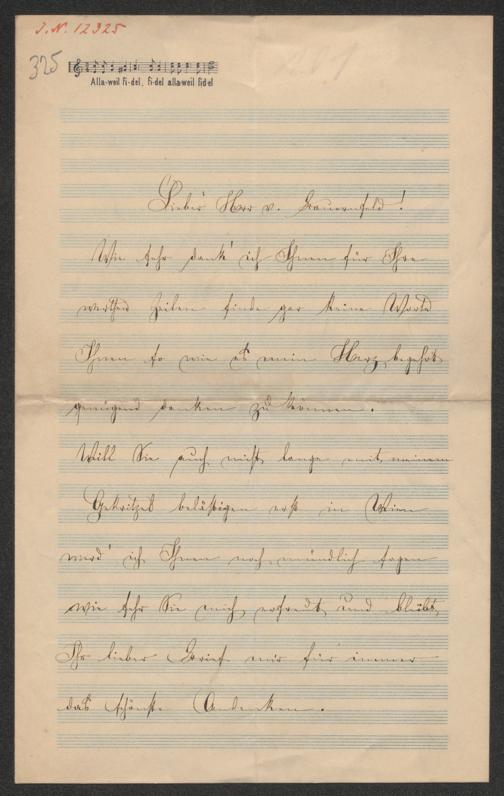 J.N. 12325
325
Alla-weil fi-del, fi-del alla-weil fidel
Lieber Herr v. Bauernfeld!
Wie sehr dank' ich Ihnen für Ihre
werthen Zeilen finde gar keine Worte
Ihnen so wie es mein Herz begehrt
genügend danken zu können.
Will Sie auch nicht lange mit meinem
Gekritzel belästigen erst in Wien
werd' ich Ihnen noch mündlich sagen
wie sehr Sie mich erfreut und bleibt
Ihr lieber Brief mir für immer
das schönste Andenken.